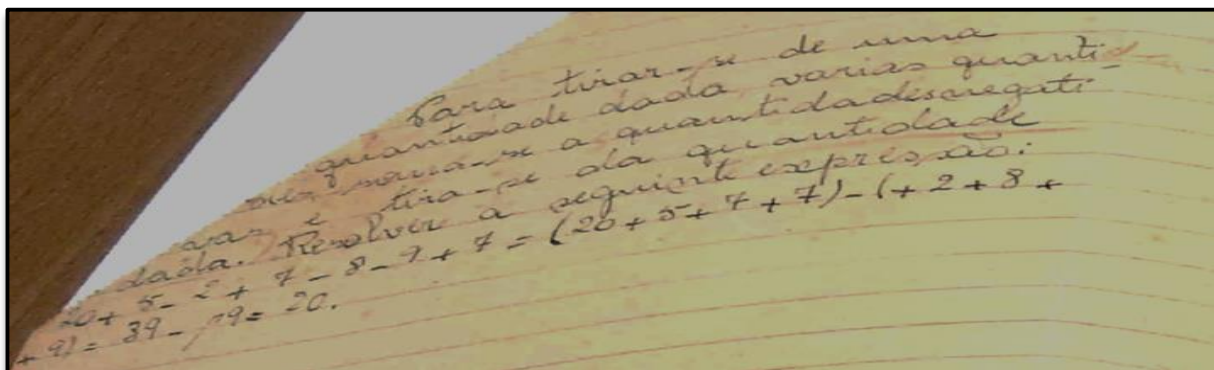 Para tirar-se de uma
quantidade dada varias quanti-
des soma-se a quantidades negati-
vas e tira-se da quantidade
dada. Resolver a seguinte expressão:
20 + 5 - 2 + 7 - 8 - 9 + 7 = (20 + 5 + 7 + 7) - (+ 2 + 8 +
+ 9) = 39 - 19 = 20.